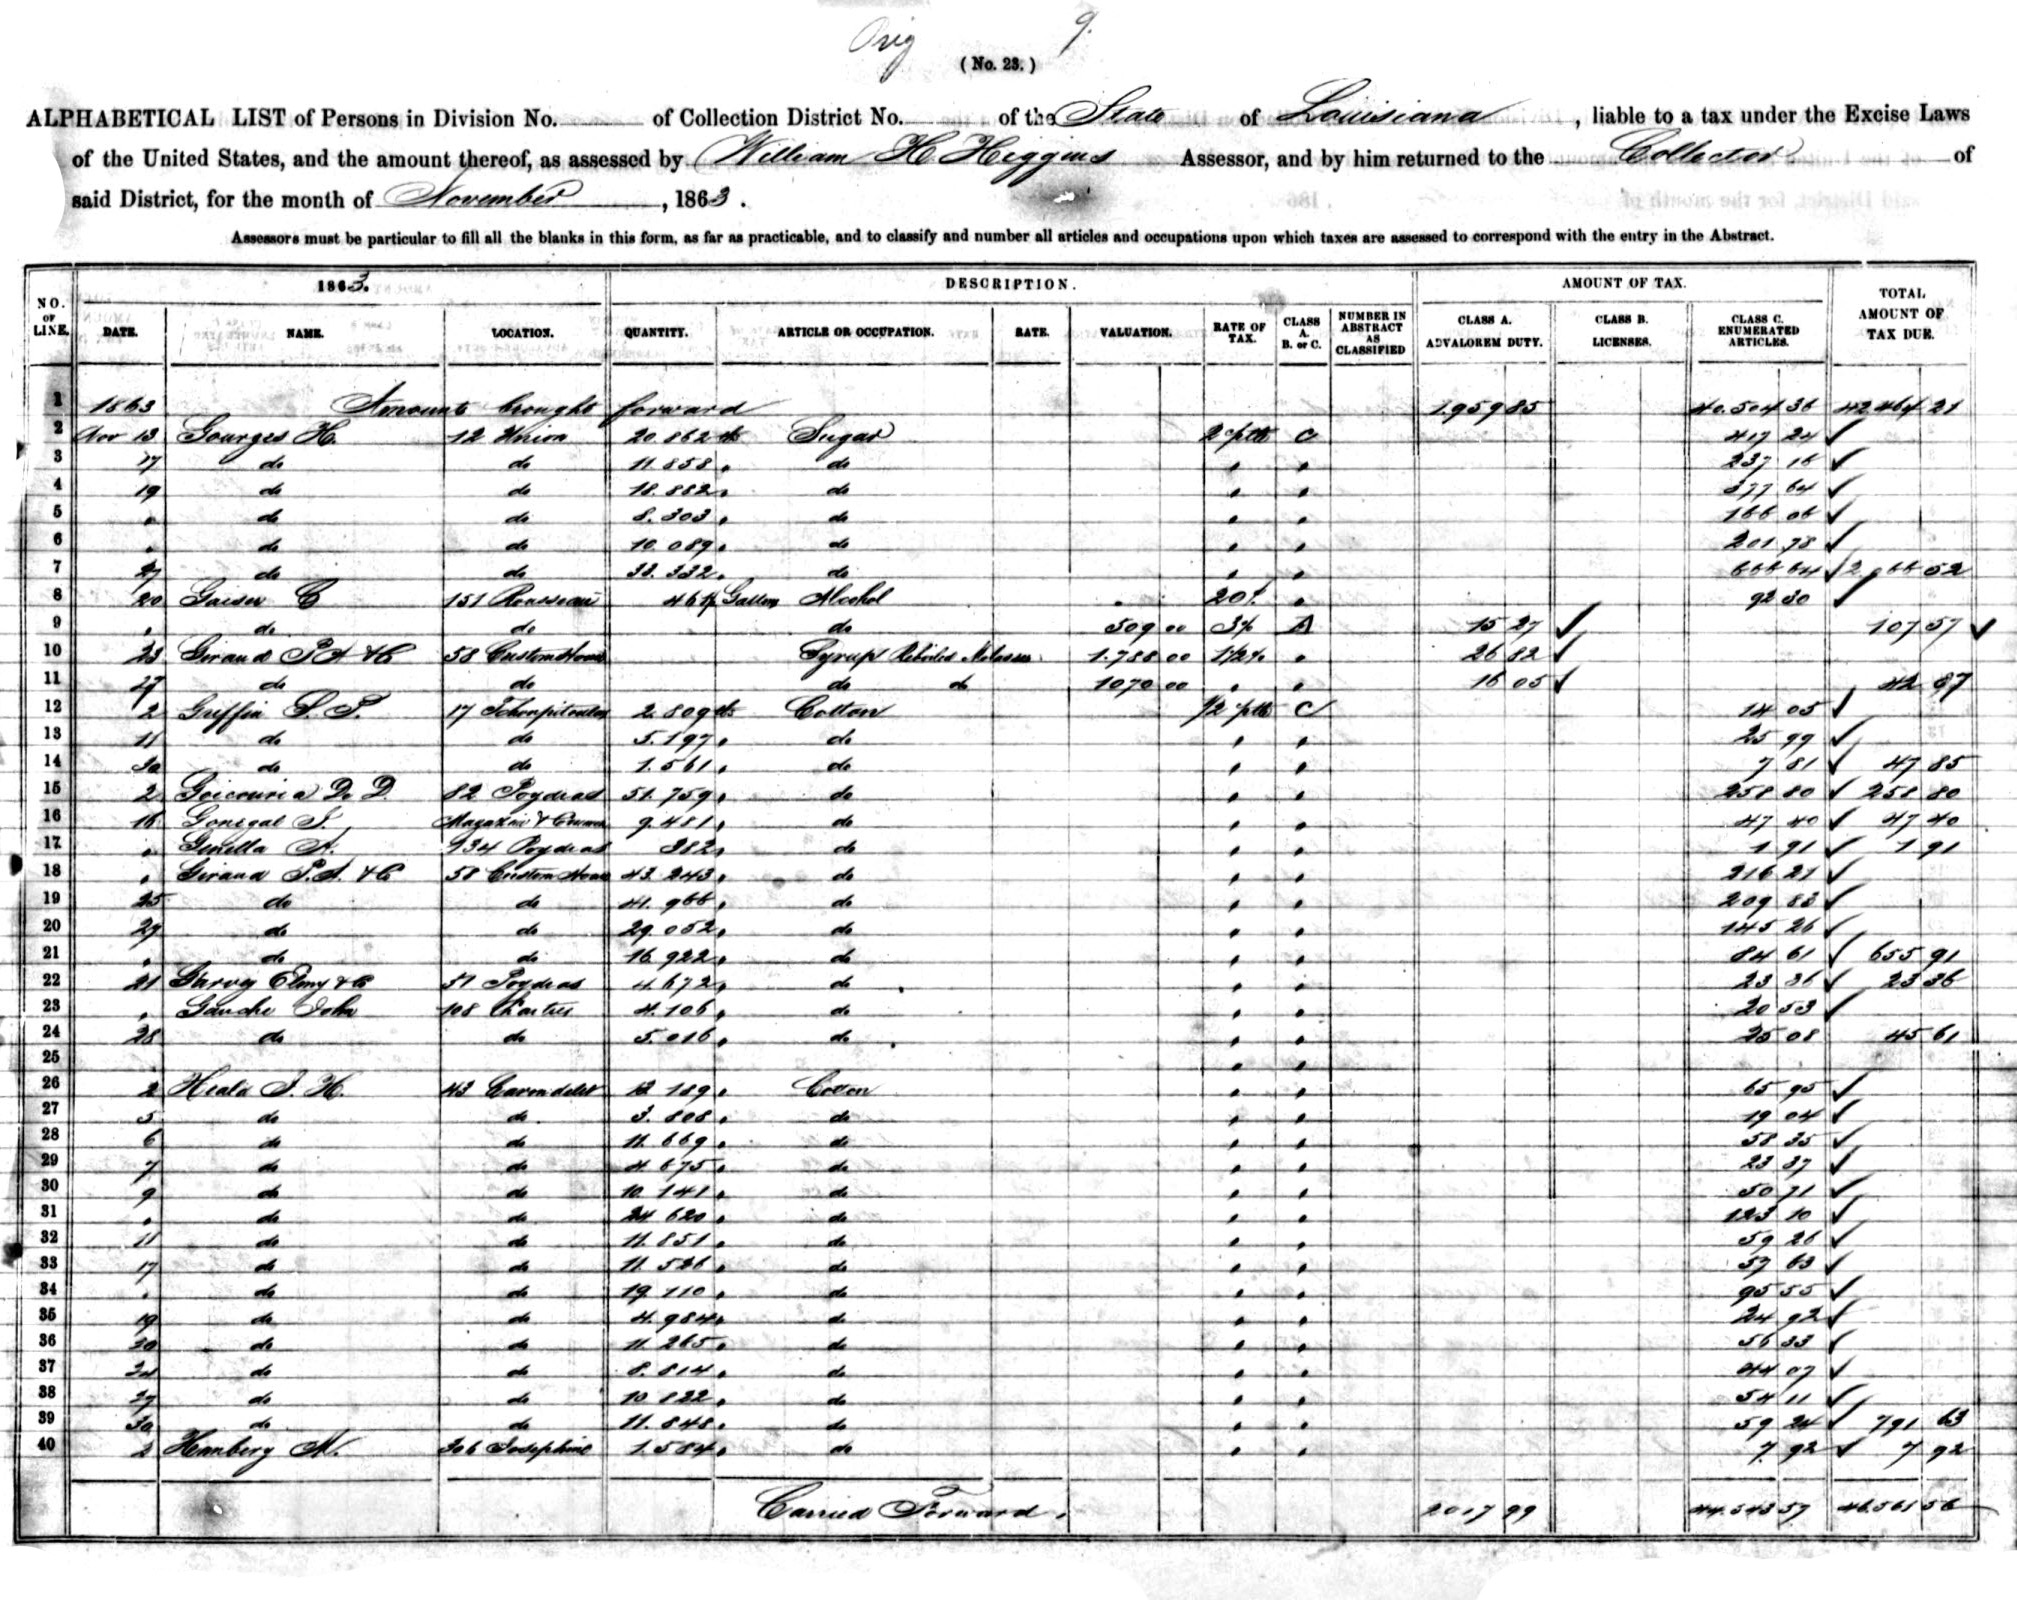 Orig 9.
(No. 23.)
ALPHABETICAL LIST of Persons in Division No. of Collection District No. of the State of Louisiana, liable to a tax under the Excise Laws
of the United States, and the amount thereof, as assessed by William H Higgins Assessor, and by him returned to the Collector of
said District, for the month of November, 1863.
Assessors must be particular to fill all the blanks in this form, as far as practicable, and to classify and number all articles and occupations upon which taxes are assessed to correspond with the entry in the Abstract.
1863. DESCRIPTION. AMOUNT OF TAX.
NO. OF LINE. DATE. NAME. LOCATION. QUANTITY. ARTICLE OR OCCUPATION. RATE. VALUATION. RATE OF TAX. CLASS A. B. or C. NUMBER IN ABSTRACT AS CLASSIFIED CLASS A. ADVALOREM DUTY. CLASS B. LICENSES. CLASS C. ENUMERATED ARTICLES. TOTAL AMOUNT OF TAX DUE.
1 1863 Amount brought forward 1.959 85 40.504 36 42 464 21
2 Nov 13 Gourges H. 12 Union 20.862 lbs Sugar 2 c p lb C 417 24 ✓
3 17 do do 11.858 " do " " 237 16 ✓
4 19 do do 18.882 " do " " 377 64 ✓
5 " do do 8.303 " do " " 166 06 ✓
6 " do do 10.089 " do " " 201 78 ✓
7 27 do do 33.332 " do " " 666 64 ✓ 2.066 52
8 20 Gaiser C 151 Rousseau 461½ Gallons Alcohol " 20 c. " 92 30 ✓
9 " do do do 509 00 3% A 15 27 ✓ 107 57 ✓
10 23 Giraud P A & Co 58 Custom House Syrup Reboiled Molasses 1.788 00 1½% " 26 82 ✓
11 27 do do do do 1070 00 " " 16 05 ✓ 42 87
12 2 Griffin S. S. 17 Tchoupitoulas 2.809 lbs Cotton ½ p lb C 14 05 ✓
13 11 do do 5.197 " do " " 25 99 ✓
14 30 do do 1.561 " do " " 7 81 ✓ 47 85
15 2 Goicouria D. D. 82 Poydras 51.759 " do " " 258 80 ✓ 258 80
16 16 Gonegal J. Magazine & Common 9.481 " do " " 47 40 ✓ 47 40
17 " Ginella A. 934 Poydras 382 " do " " 1 91 ✓ 1 91
18 " Giraud P.A. & Co 58 Custom House 43.243 " do " " 216 21 ✓
19 25 do do 41.966 " do " " 209 83 ✓
20 29 do do 29.052 " do " " 145 26 ✓
21 " do do 16.922 " do " " 84 61 ✓ 655 91
22 21 Garvey & Co 57 Poydras 4.672 " do " " 23 36 ✓ 23 36
23 " Gauche John 108 Chartres 4.106 " do " " 20 53 ✓
24 28 do do 5.016 " do " " 25 08 45 61
25 " "
26 2 Heald J. H. 43 Carondelet 13 189 " Cotton " " 65 95 ✓
27 5 do do 3.808 " do " " 19 04 ✓
28 6 do do 11.669 " do " " 58 35 ✓
29 7 do do 4 675 " do " " 23 37 ✓
30 9 do do 10 141 " do " " 50 71 ✓
31 " do do 24 620 " do " " 123 10 ✓
32 11 do do 11.851 " do " " 59 26 ✓
33 17 do do 11 526 " do " " 57 63 ✓
34 " do do 19 110 " do " " 95 55 ✓
35 19 do do 4.984 " do " " 24 92 ✓
36 20 do do 11 265 " do " " 56 33 ✓
37 24 do do 8.814 " do " " 44 07 ✓
38 27 do do 10 822 " do " " 54 11 ✓
39 30 do do 11.848 " do " " 59 24 ✓ 791 63
40 2 Hanbery N. 306 Josephine 1.584 " do " " 7 92 ✓ 7 92
Carried Forward. 2017 99 44.543 57 46.561 56